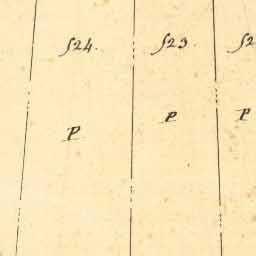 524. 523. 52
P P P